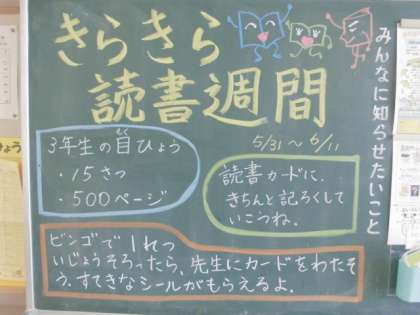 みんなに知らせたいこと
きらきら
読書週間
5/31〜6/11
3年生の目ひょう
・15さつ
・500ページ
読書カードに、
きちんと記ろくして
いこうね。
ビンゴで1れつ
いじょうそろったら、先生にカードをわたそ
う。すてきなシールがもらえるよ。